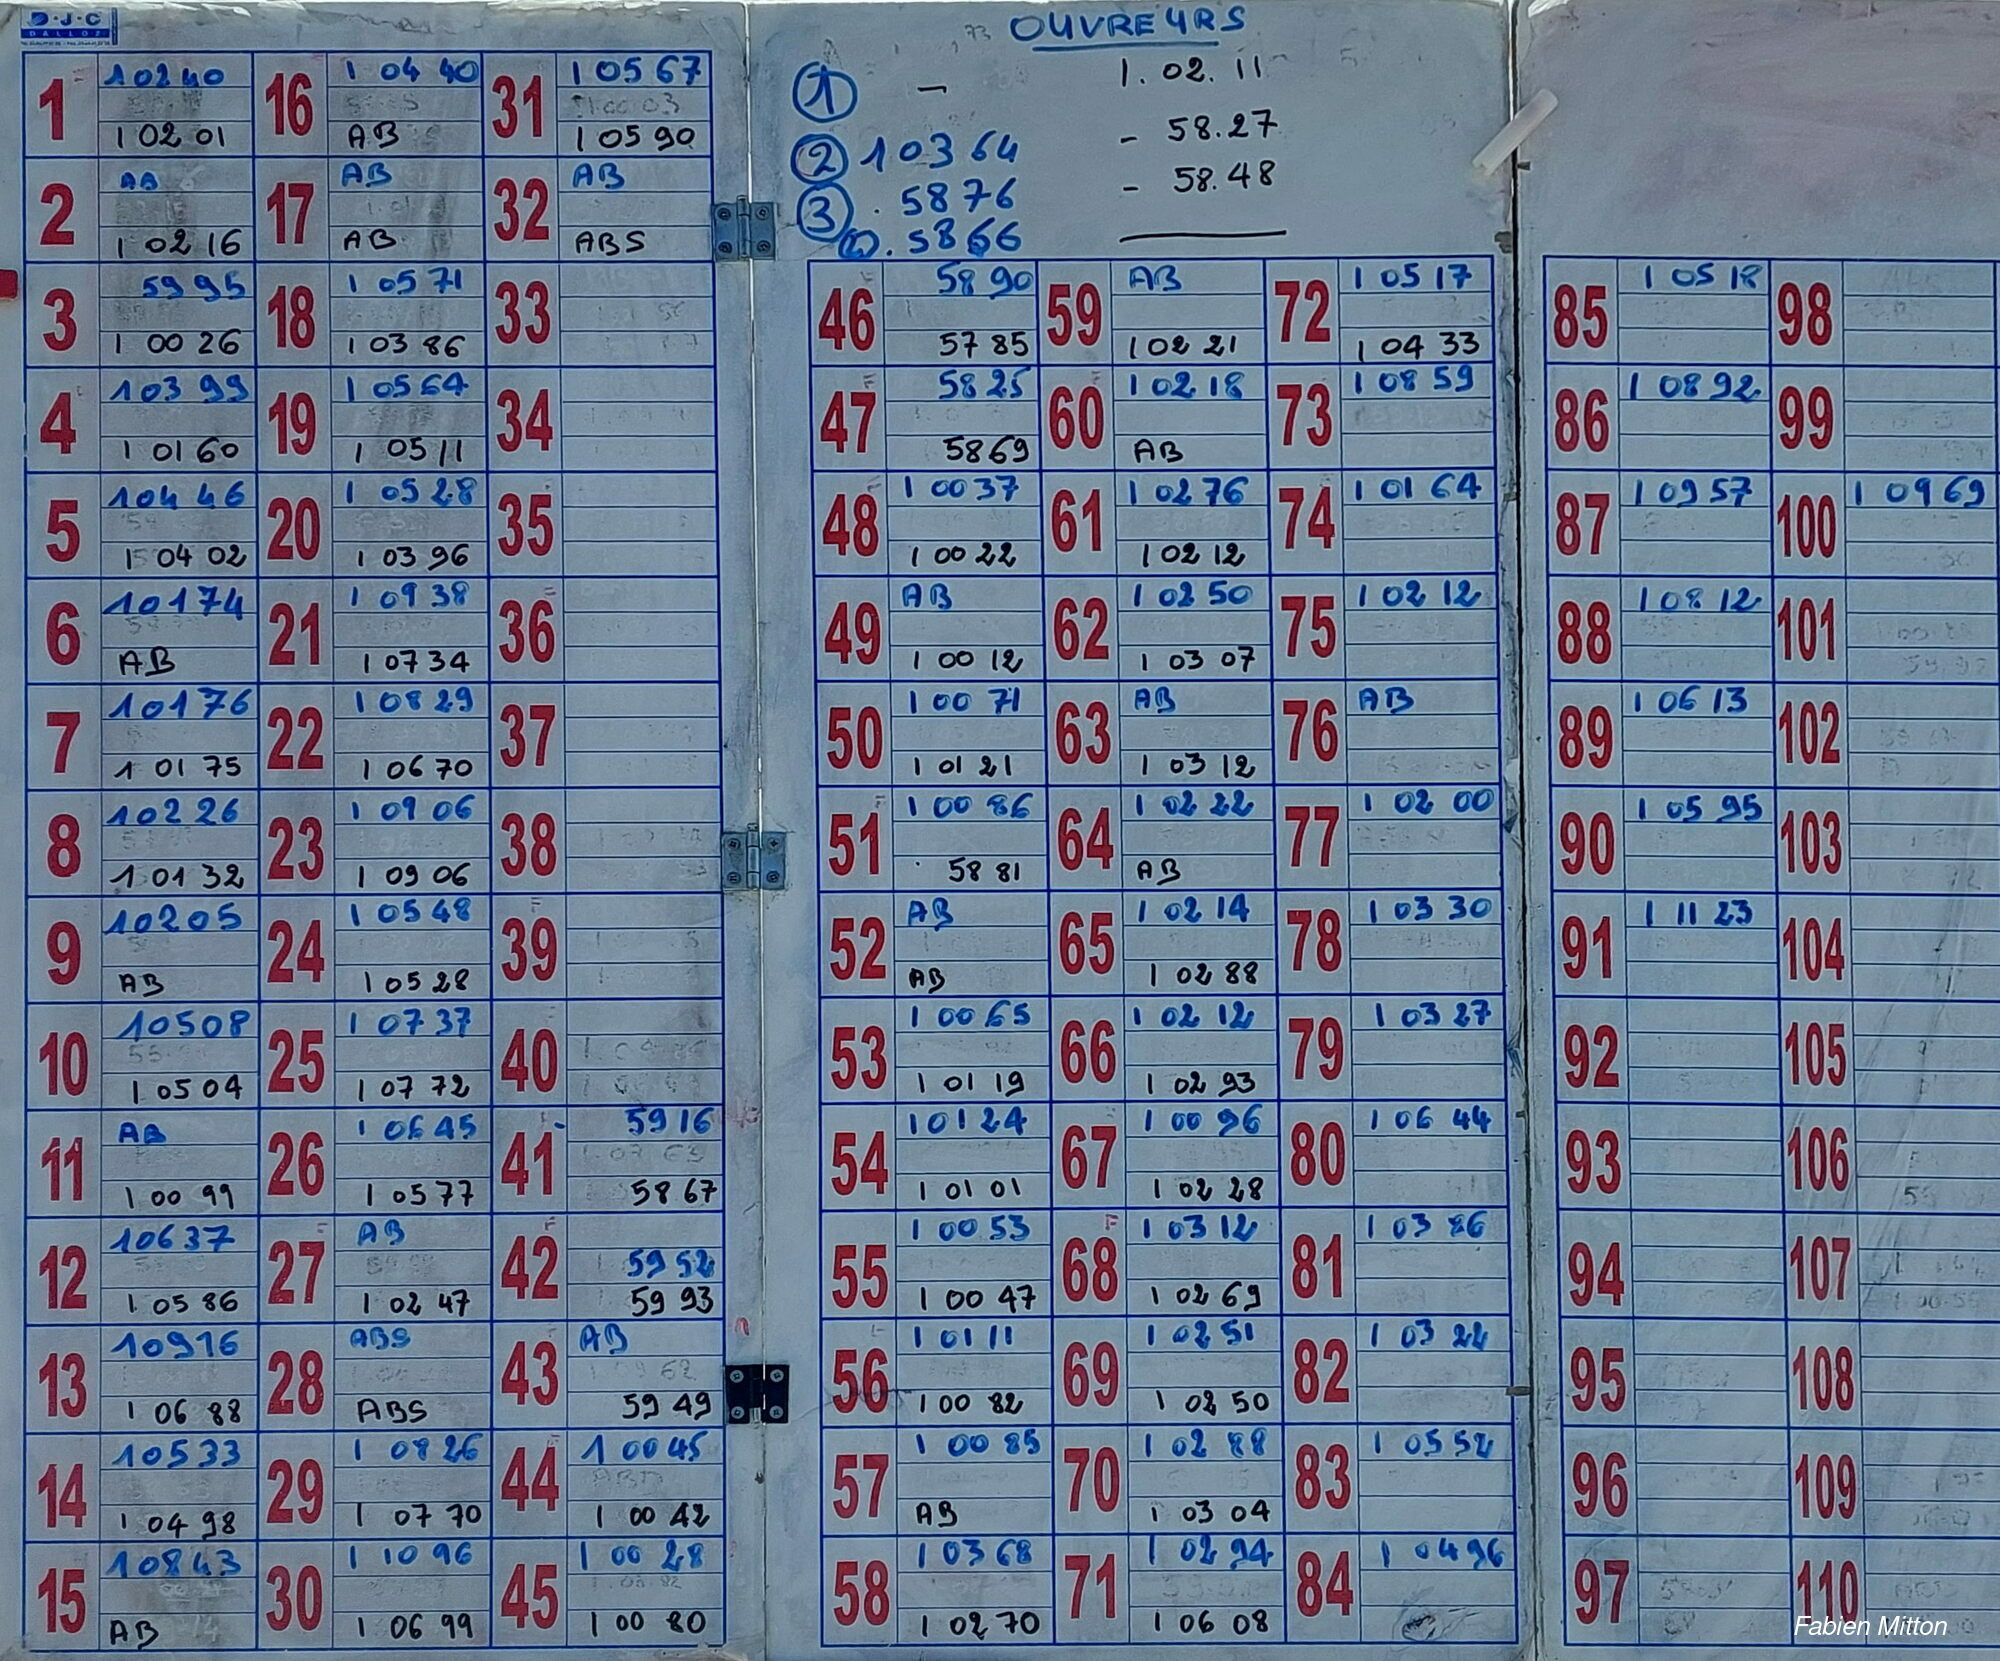 D·J·C
DALLOZ
OUVREURS
1 - 1.02.11
2 10364 - 58.27
3 . 5876 - 58.48
. 5866
1 10240
1 02 01
2 AB
1 02 16
3 59 95
1 00 26
4 10399
1 01 60
5 10446
1 04 02
6 10174
AB
7 10176
1 01 75
8 10226
1 01 32
9 10205
AB
10 10508
1 05 04
11 AB
1 00 99
12 10637
1 05 86
13 10916
1 06 88
14 10533
1 04 98
15 10843
AB
16 1 04 40
AB
17 AB
AB
18 1 05 71
1 03 86
19 1 05 64
1 05 11
20 1 05 28
1 03 96
21 1 09 38
1 07 34
22 1 08 29
1 06 70
23 1 09 06
1 09 06
24 1 05 48
1 05 28
25 1 07 37
1 07 72
26 1 06 45
1 05 77
27 AB
1 02 47
28 ABS
ABS
29 1 08 26
1 07 70
30 1 10 96
1 06 99
31 1 05 67
1 05 90
32 AB
ABS
33
34
35
36
37
38
39
40
41 59 16
58 67
42 59 52
59 93
43 AB
59 49
44 1 00 45
1 00 42
45 1 00 28
1 00 80
46 58 90
57 85
47 58 25
58 69
48 1 00 37
1 00 22
49 AB
1 00 12
50 1 00 71
1 01 21
51 1 00 86
58 81
52 AB
AB
53 1 00 65
1 01 19
54 1 01 24
1 01 01
55 1 00 53
1 00 47
56 1 01 11
1 00 82
57 1 00 85
AB
58 1 03 68
1 02 70
59 AB
1 02 21
60 1 02 18
AB
61 1 02 76
1 02 12
62 1 02 50
1 03 07
63 AB
1 03 12
64 1 02 22
AB
65 1 02 14
1 02 88
66 1 02 12
1 02 93
67 1 00 96
1 02 28
68 1 03 12
1 02 69
69 1 02 51
1 02 50
70 1 02 88
1 03 04
71 1 02 94
1 06 08
72 1 05 17
1 04 33
73 1 08 59
74 1 01 64
75 1 02 12
76 AB
77 1 02 00
78 1 03 30
79 1 03 27
80 1 06 44
81 1 03 86
82 1 03 22
83 1 05 52
84 1 04 96
85 1 05 18
86 1 08 92
87 1 09 57
88 1 08 12
89 1 06 13
90 1 05 95
91 1 11 23
92
93
94
95
96
97
98
99
100 1 09 69
101
102
103
104
105
106
107
108
109
110
Fabien Mitton